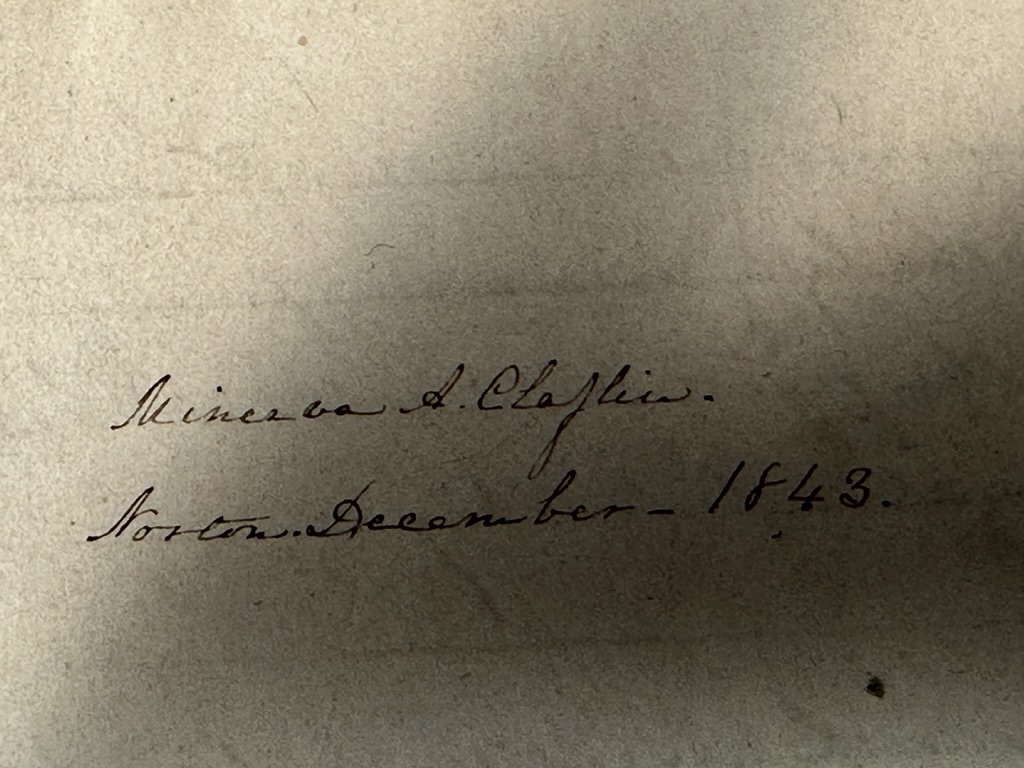 Minerva A. Claflin.
Norton. December - 1843.